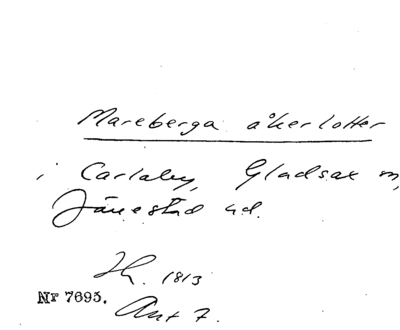 Mareberga åkerlotter
i Carlaby, Gladsax m,
Järrestad hd.
Th. 1813
Nr 7695.
Ant 7.